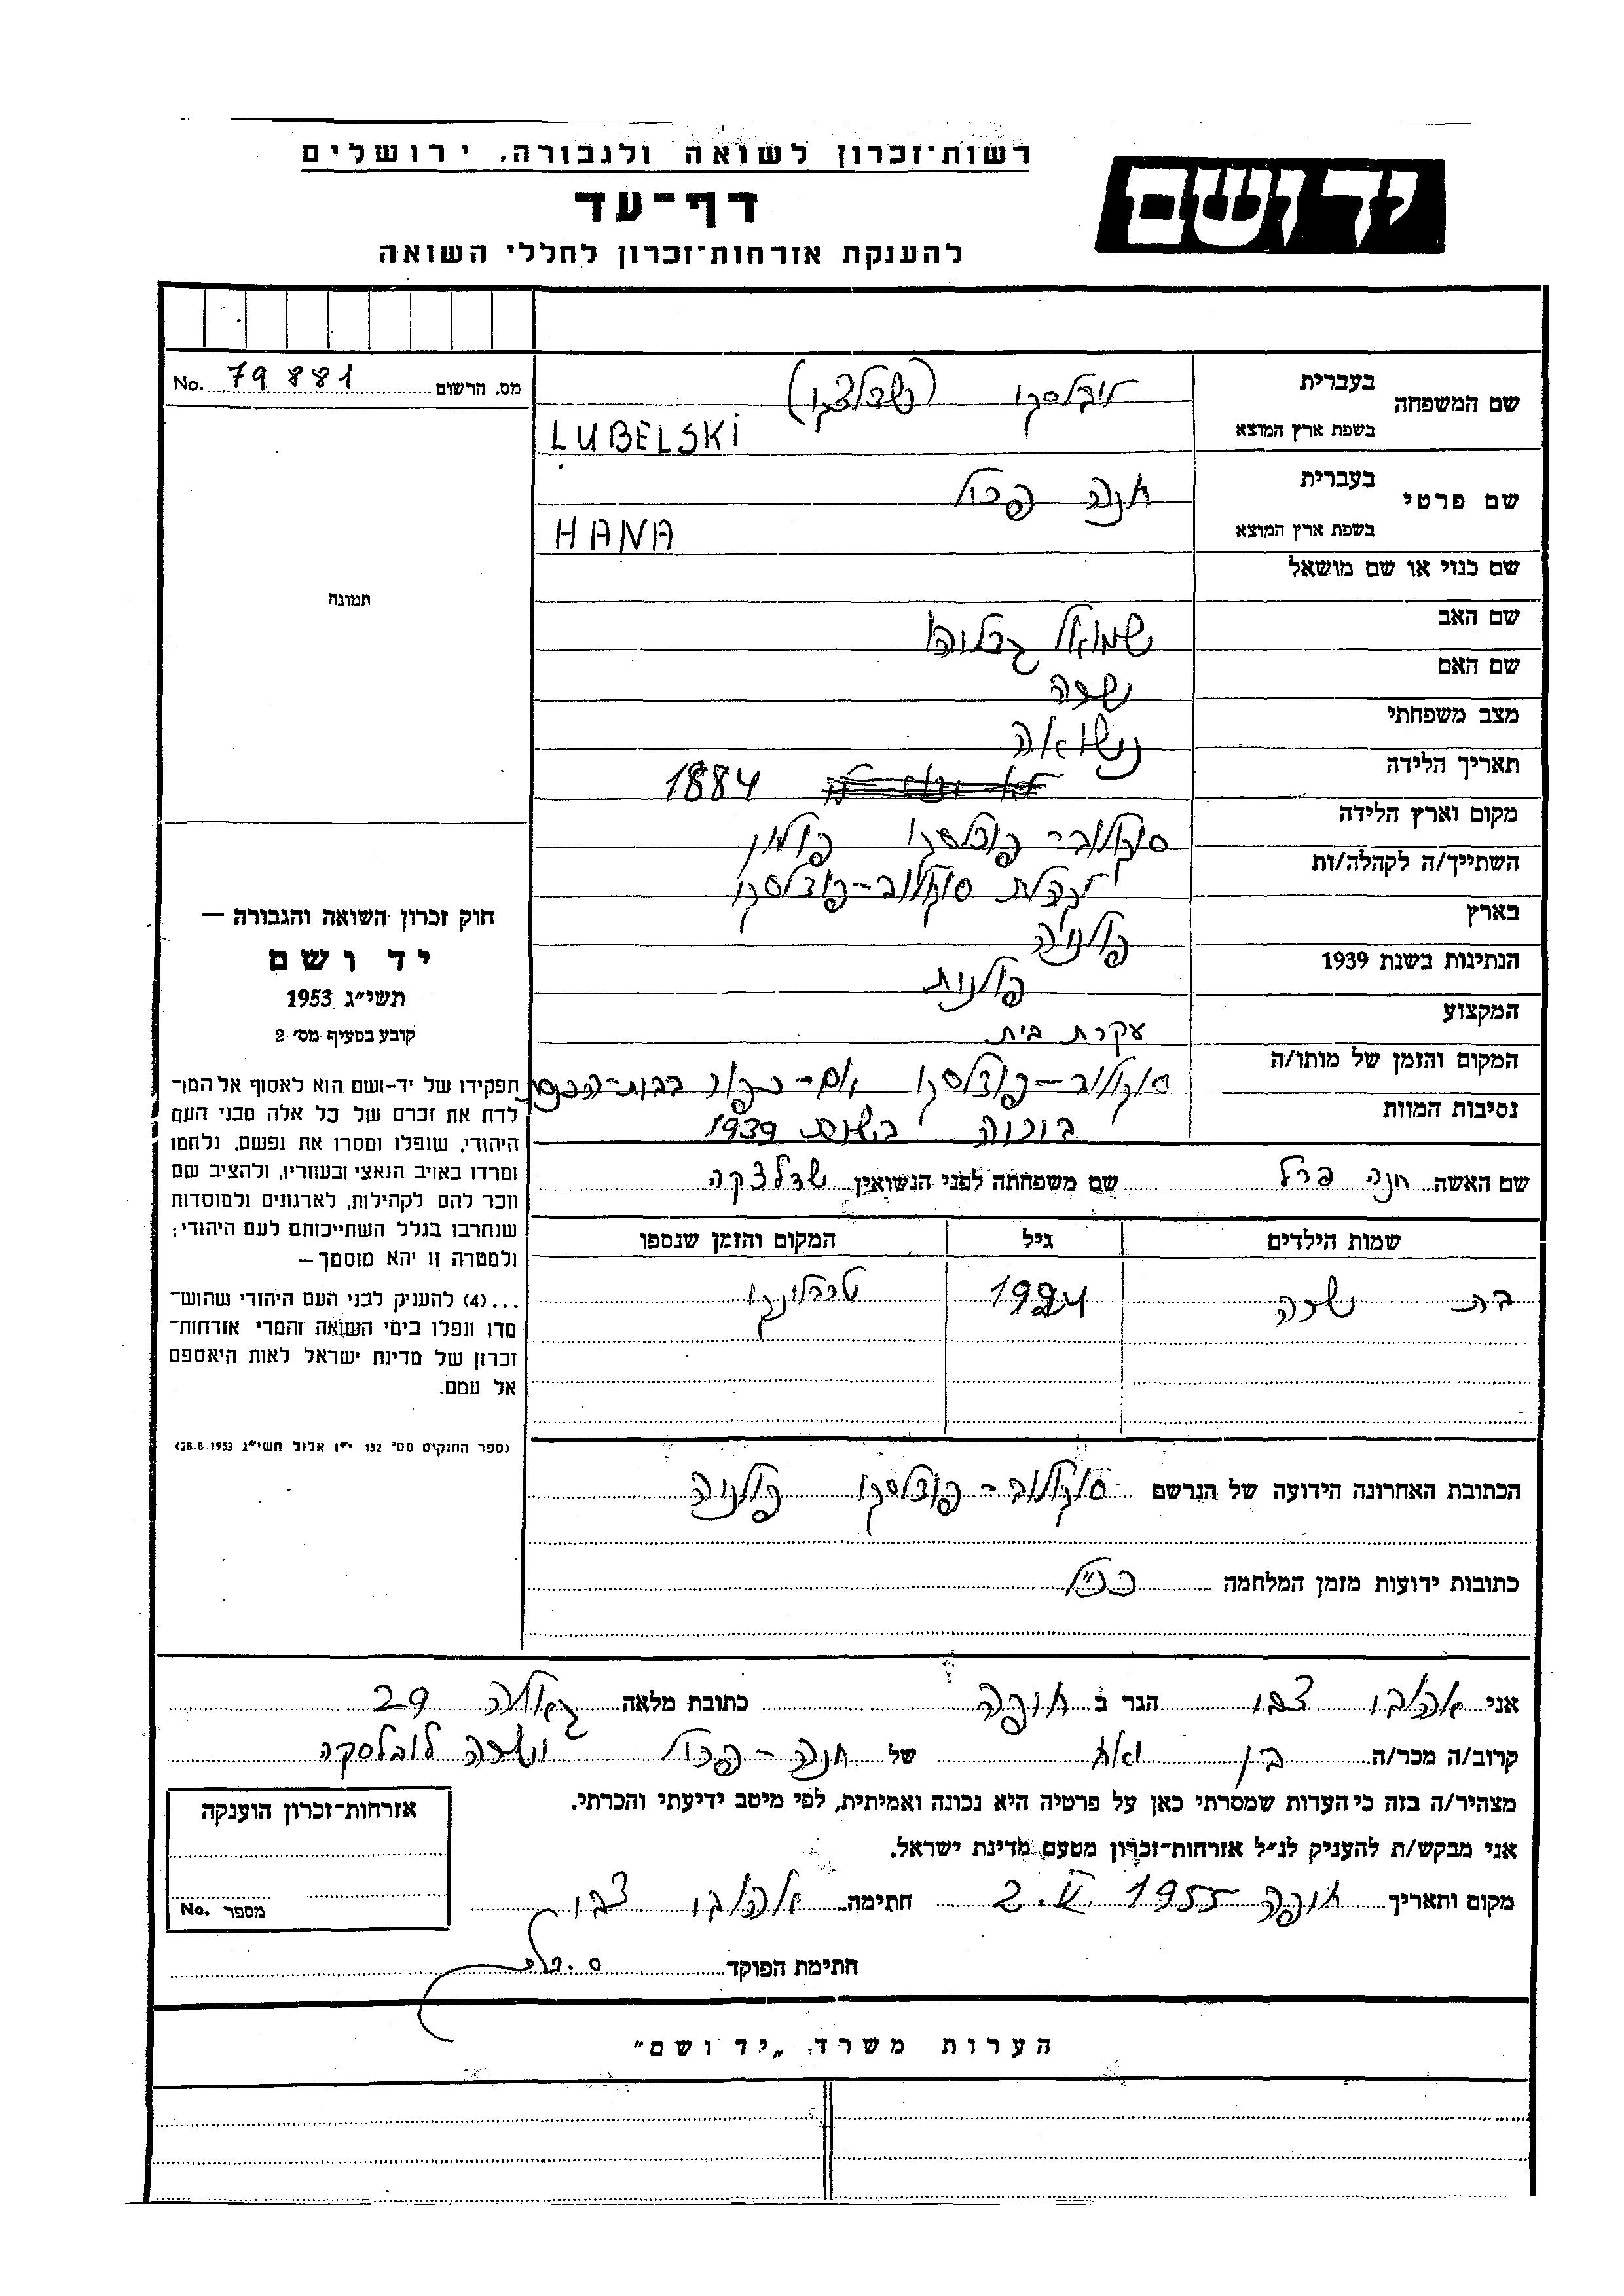 רשות־זכרון לשואה ולגבורה, ירושלים
יד ושם
דף־עד
להענקת אזרחות־זכרון לחללי השואה
מס. הרשום 79881 No.
שם המשפחה
בעברית לובלסקי (שדלצקי)
בשפת ארץ המוצא LUBELSKI
שם פרטי
בעברית חנה פרל
בשפת ארץ המוצא HANA
שם כנוי או שם מושאל
שם האב שמואל גדליהו
שם האם שרה
מצב משפחתי נשואה
תאריך הלידה 1884
מקום וארץ הלידה סוקולוב־פודלסקי פולין
השתייך/ה לקהלה/ות לקהלת סוקולוב־פודלסקי
בארץ פולניה
הנתינות בשנת 1939 פולנית
המקצוע עקרת בית
המקום והזמן של מותו/ה סוקולוב־פודלסקי יום־כפור בבית־הכנסת
נסיבות המוות בשנת 1939
שם האשה חנה פרל שם משפחתה לפני הנשואין שדלצקה
שמות הילדים גיל המקום והזמן שנספו
בת שרה 1924 טרבלינקי
הכתובת האחרונה הידועה של הנרשם סוקולוב־פודלסקי פולניה
כתובות ידועות מזמן המלחמה כנ"ל
תמונה
חוק זכרון השואה והגבורה —
יד ושם
תשי״ג 1953
קובע בסעיף מס׳ 2
תפקידו של יד-ושם הוא לאסוף אל המו־
לדת את זכרם של כל אלה מבני העם
היהודי, שנפלו ומסרו את נפשם, נלחמו
ומרדו באויב הנאצי ובעוזריו, ולהציב שם
וזכר להם לקהילות, לארגונים ולמוסדות
שנחרבו בגלל השתייכותם לעם היהודי;
ולמטרה זו יהא מוסמך—
...(4) להעניק לבני העם היהודי שהוש־
מדו ונפלו בימי השואה והמרי אזרחות־
זכרון של מדינת ישראל לאות היאספם
אל עמם.
(ספר החוקים מס׳ 132 י״ז אלול תשי״ג 28.8.1953)
אני אהובי צבי הגר ב חיפה כתובת מלאה גאולה 29
קרוב/ה מכר/ה בן ואח של חנה־פרל ושרה לובלסקה
מצהיר/ה בזה כי העדות שמסרתי כאן על פרטיה היא נכונה ואמיתית, לפי מיטב ידיעתי והכרתי.
אני מבקש/ת להעניק לנ״ל אזרחות־זכרון מטעם מדינת ישראל.
מקום ותאריך חיפה 1955 .V.2 חתימה אהובי צבי
חתימת הפוקד
אזרחות־זכרון הוענקה
מספר No.
הערות משרד „יד ושם״